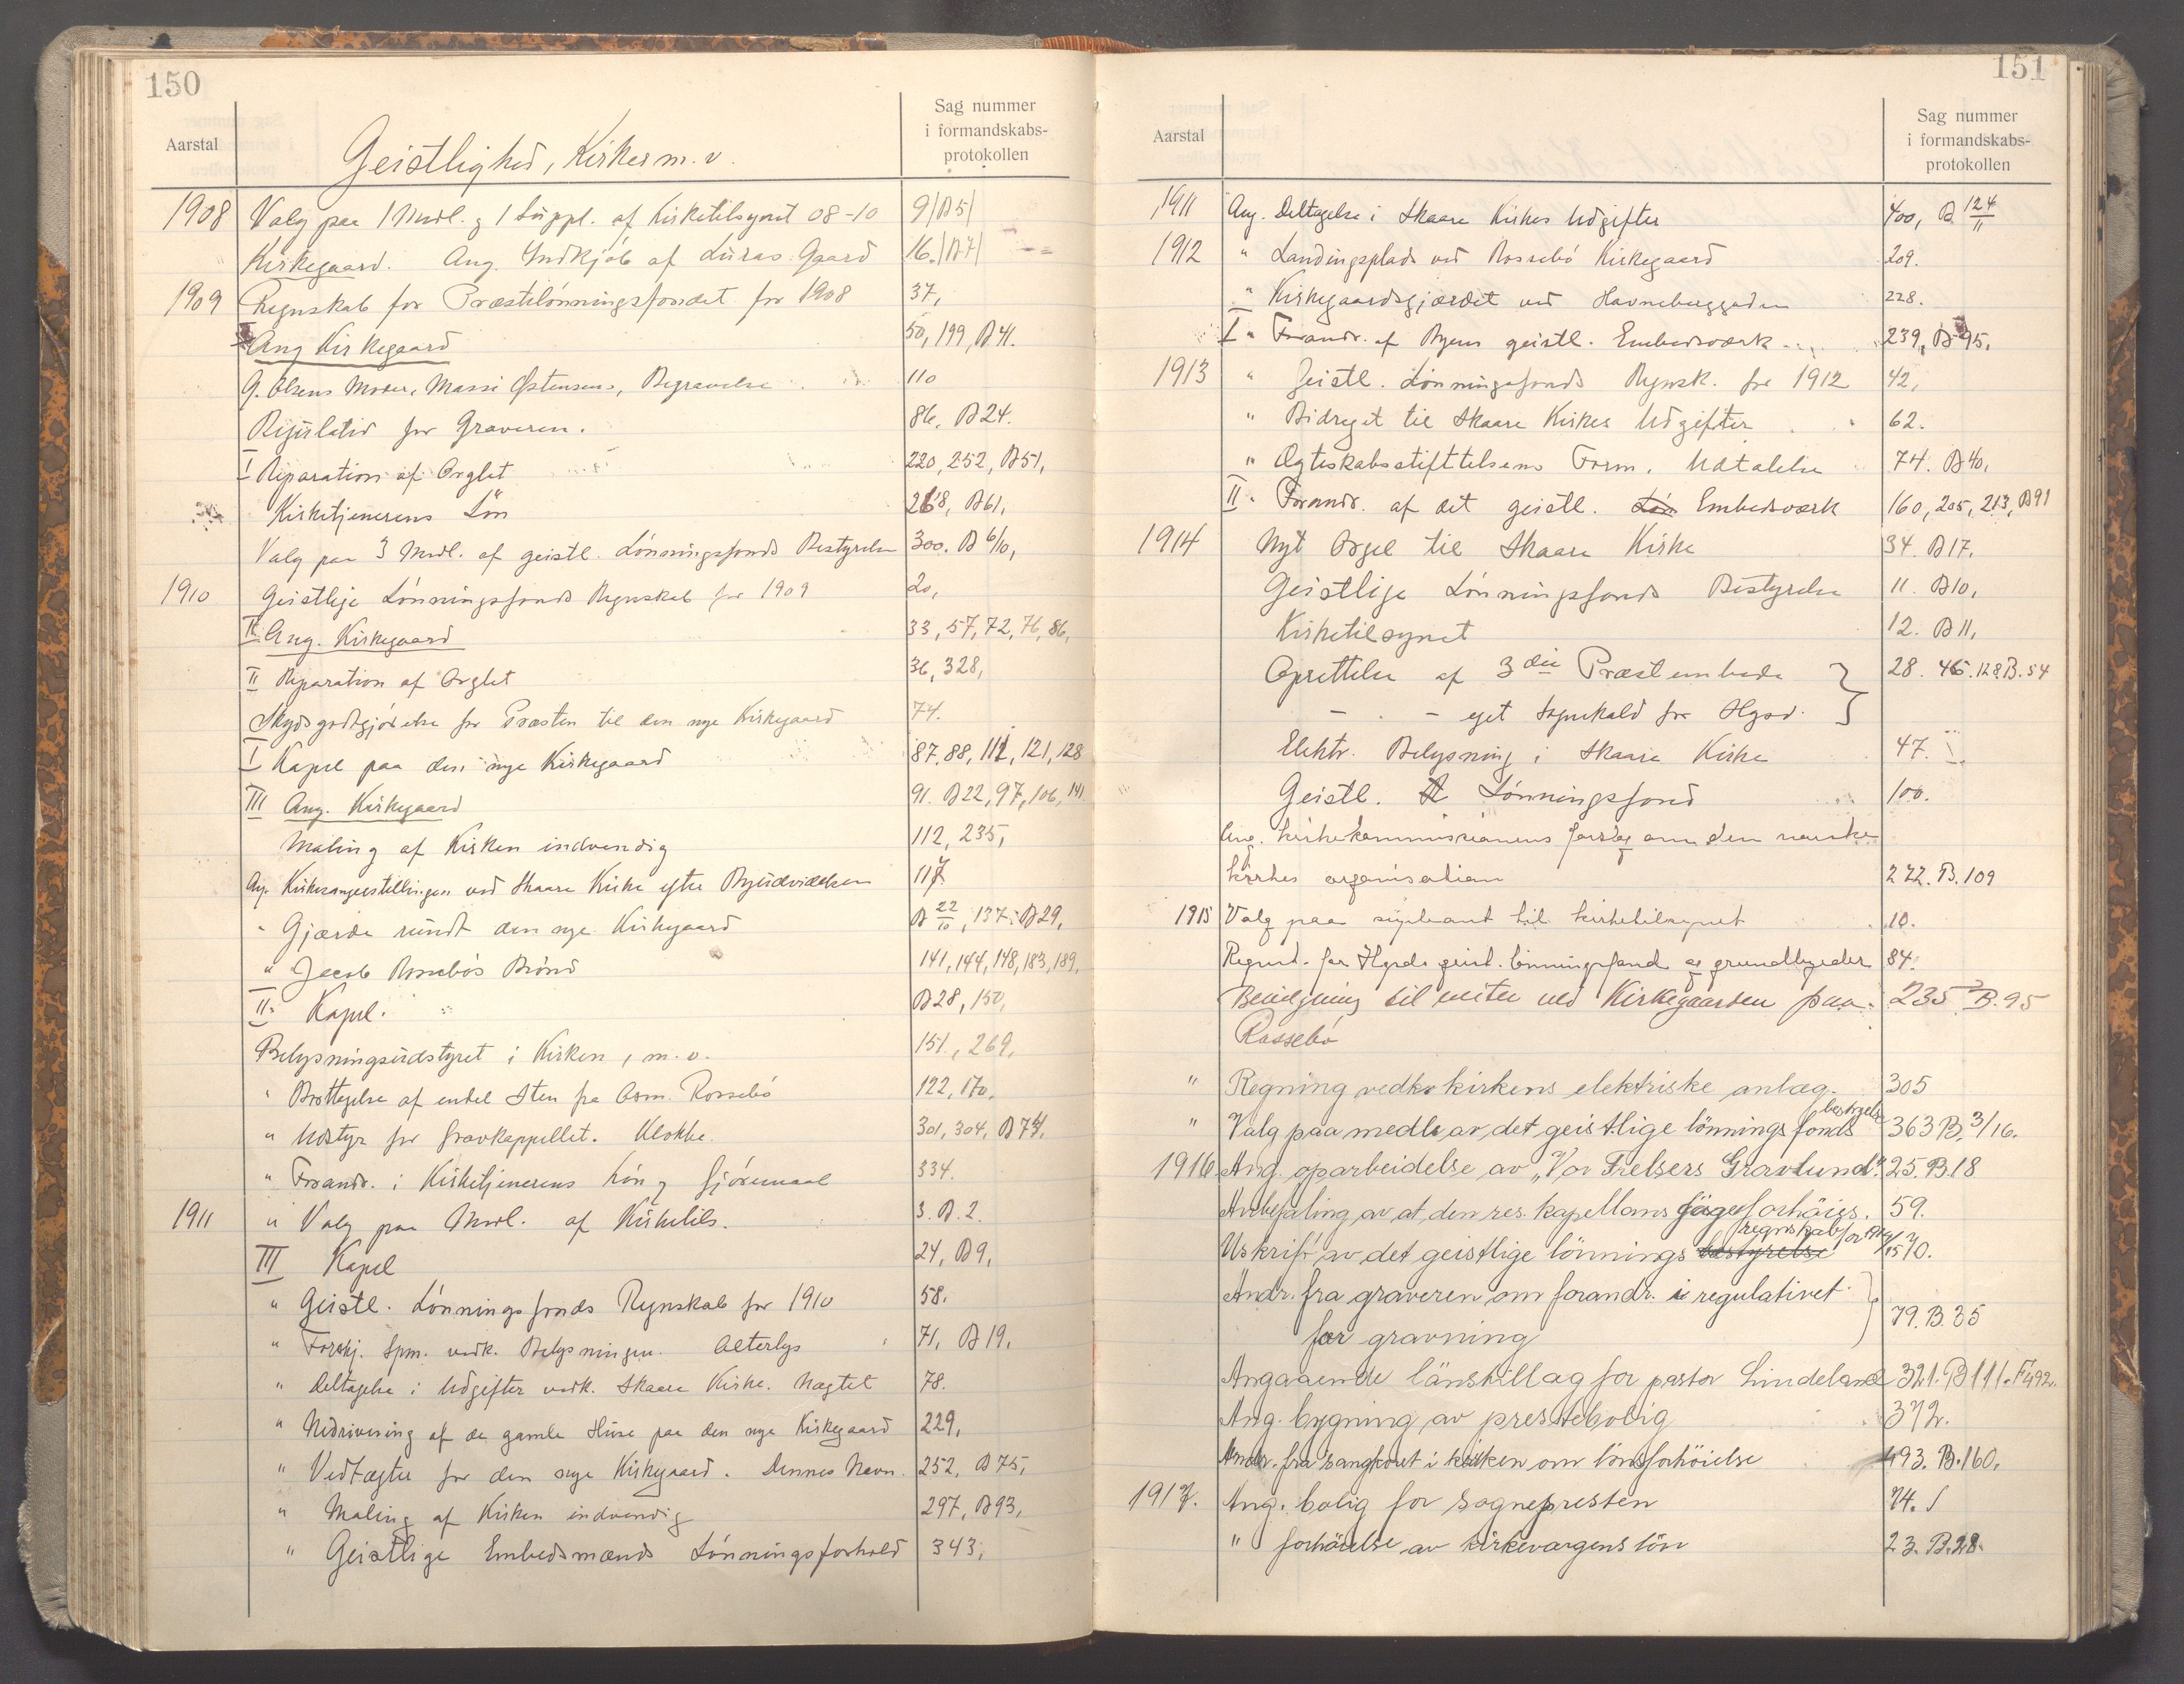 150
Aarstal
Geistlighed, Kirker m.v.
Sag nummer
i formandskabs-
protokollen
1908 Valg paa 1 Medl. og 1 Suppl. af Kirketilsynet 08-10 9/B5/
Kirkegaard. Ang. Indkjøb af Gaard 16./B7/
1909 Regnskab for Præstelønningsfondet for 1908 37,
I Ang Kirkegaard 50, 199, B41.
G. Olsens Moder, Massi Østensens, Begravelse 110
Regulativ for Graveren. 86, B24.
I Reparation af Orglet 220, 252, B51,
Kirketjenerens Løn 268, B61,
Valg paa 3 Medl. af geistl. Lønningsfonds Bestyrelse 300. B 6/10,
1910 Geistlige Lønningsfonds Regnskab for 1909 20,
II Ang. Kirkegaard 33, 57, 72, 76, 86,
II Reparation af Orglet 36, 328,
Skydsgodtgjørelse for Præsten til den nye Kirkegaard 74.
I Kapel paa den nye Kirkegaard 87, 88, 111, 121, 128
III Ang. Kirkegaard 91. B22, 97, 106, 141.
Maling af Kirken indvendig 112, 235,
Ang. Kirkesangerstillingen ved Skaare Kirke efter Byudvidelsen 117
" Gjærde rundt den nye Kirkegaard B 22/10, 137. B29,
" Jacob Rossebøs Brønd 141, 144, 148, 183, 189,
II " Kapel. B28, 150,
Belysningsudstyret i Kirken, m.v. 151, 269,
" Borttagelse af endel Sten fra Asm. Rossebø 122, 170.
" Udstyr for Gravkappellet. Klokke. 301, 304, B74.
" Forandr. i Kirketjenerens Løn og Gjøremaal 334.
1911 " Valg paa Medl. af Kirketils. 3. B. 2.
III Kapel 24, B9,
" Geistl. Lønningsfonds Regnskab for 1910 58.
" Forskj. Spm. vedk. Belysningen. Alterlys 71, B19.
" Deltagelse i Udgifter vedk. Skaare Kirke. Nægtet 78.
" Nedrivning af de gamle Huse paa den nye Kirkegaard 229,
" Vedtægter for den nye Kirkegaard. Dennes Navn. 252, B75,
" Maling af Kirken indvendig 297, B93,
" Geistlige Embedsmænds Lønningsforhold 343,
151
Aarstal
Sag nummer
i formandskabs-
protokollen
1911 Ang. Deltagelse i Skaare Kirkes Udgifter 400, B 124/11
1912 " Landingsplads ved Rossebø Kirkegaard 209.
" Kirkegaardsgjærdet ved Havneberggaden 228.
I " Forandr. af Byens geistl. Embedsværk 239, B95,
1913 " Geistl. Lønningsfonds Regnsk. for 1912 42,
" Bidraget til Skaare Kirkes Udgifter 62.
" Ægteskabsstifttelsens Form, Udtalelse 74. B40,
II " Forandr. af det geistl. Løn Embedsværk 160, 205, 213, B91
1914 Nyt Orgel til Skaare Kirke 34. B17,
Geistlige Lønningsfonds Bestyrelse 11. B10,
Kirketilsynet 12. B11,
Oprettelse af 3die Præstembede 28. 465. 128. B. 54
- . - eget Sognekald for Hgsd.
Elektr. Belysning i Skaare Kirke 47.
Geistl. Lønningsfond 100.
Ang. kirkekommissionens forslag om den norske
kirkes organisation 222. B. 109
1915 Valg paa supleant til kirketilsynet 10.
Regnsk. for Hgsds geist. lönningsfond og grundbyrder 84.
Bevilgning til ved Kirkegaarden paa 235 B. 95
Rossebö
" Regning vedk. kirkens elektriske anlæg. 305
" Valg paa medle av det geistlige lönningsfonds bestyrelse 363 B. 3/16.
1916 Ang. oparbeidelse av "Vor Frelsers Gravlund". 25. B.18
Anbefaling av at den res. kapellans gage forhöies. 59.
Uskrift av det geistlige lönnings bestyrelse regnskab for 1914/15 70.
Andr. fra graveren om forandr. i regulativet
for gravning 79. B. 35
Angaaende lönstillæg for pastor Lindeland 321. B 111. F 492.
Ang. bygning av prestebolig 372.
Andr. fra sangkoret i kirken om lönsforhöielse 493. B. 160.
1917. Ang. bolig for sognepresten 74.
" forhöielse av kirkevargens lön 23. B.28.